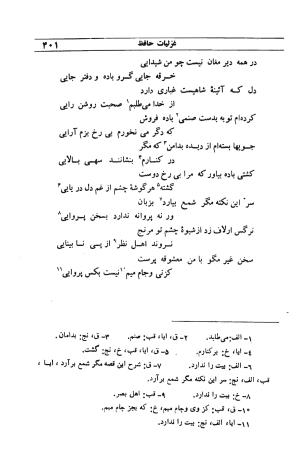 غزلیات حافظ ۴۰۱
در همه دیر مغان نیست چو من شیدایی
خرقه جایی گرو باده و دفتر جایی
دل که آئینهٔ شاهیست غباری دارد
از خدا می‌طلبم۱ صحبت روشن رایی
کرده‌ام توبه بدست صنمی۲ باده فروش
که دگر می نخورم بی رخ بزم آرایی
جویها بسته‌ام از دیده بدامن۳ که مگر
در کنارم۴ بنشانند سهی بالایی
کشتی باده بیاور که مرا بی رخ دوست
گشته۵ هر گوشهٔ چشم از غم دل دریایی۶
سر۷ این نکته مگر شمع بیارد۷ بزبان
ور نه پروانه ندارد بسخن پروایی۸
نرگس ار لاف زد از شیوهٔ چشم تو مرنج
نروند اهل نظر۹ از پی نابینایی
سخن غیر مگو با من معشوقه پرست
کزنی وجام میم۱۰ نیست بکس پروایی۱۱
۱- الف: می‌طلبد. ۲- ق، ایا، قب: صنم. ۳- ق، نچ: بدامان.
۴- ایا، خ: برکنارم. ۵- ق، ایا، قب، خ، نچ: گشت.
۶- الف: بیت را ندارد. ۷- ق: شرح این قصه مگر شمع برآرد، ایا،
قب، الف، نچ: سر این نکته مگر شمع برآرد.
۸- خ: بیت را ندارد. ۹- قب: اهل بصر.
۱۰- ق، قب: کز وی وجام میم، خ: که بجز جام میم.
۱۱- ایا، الف، نچ: بیت را ندارد.